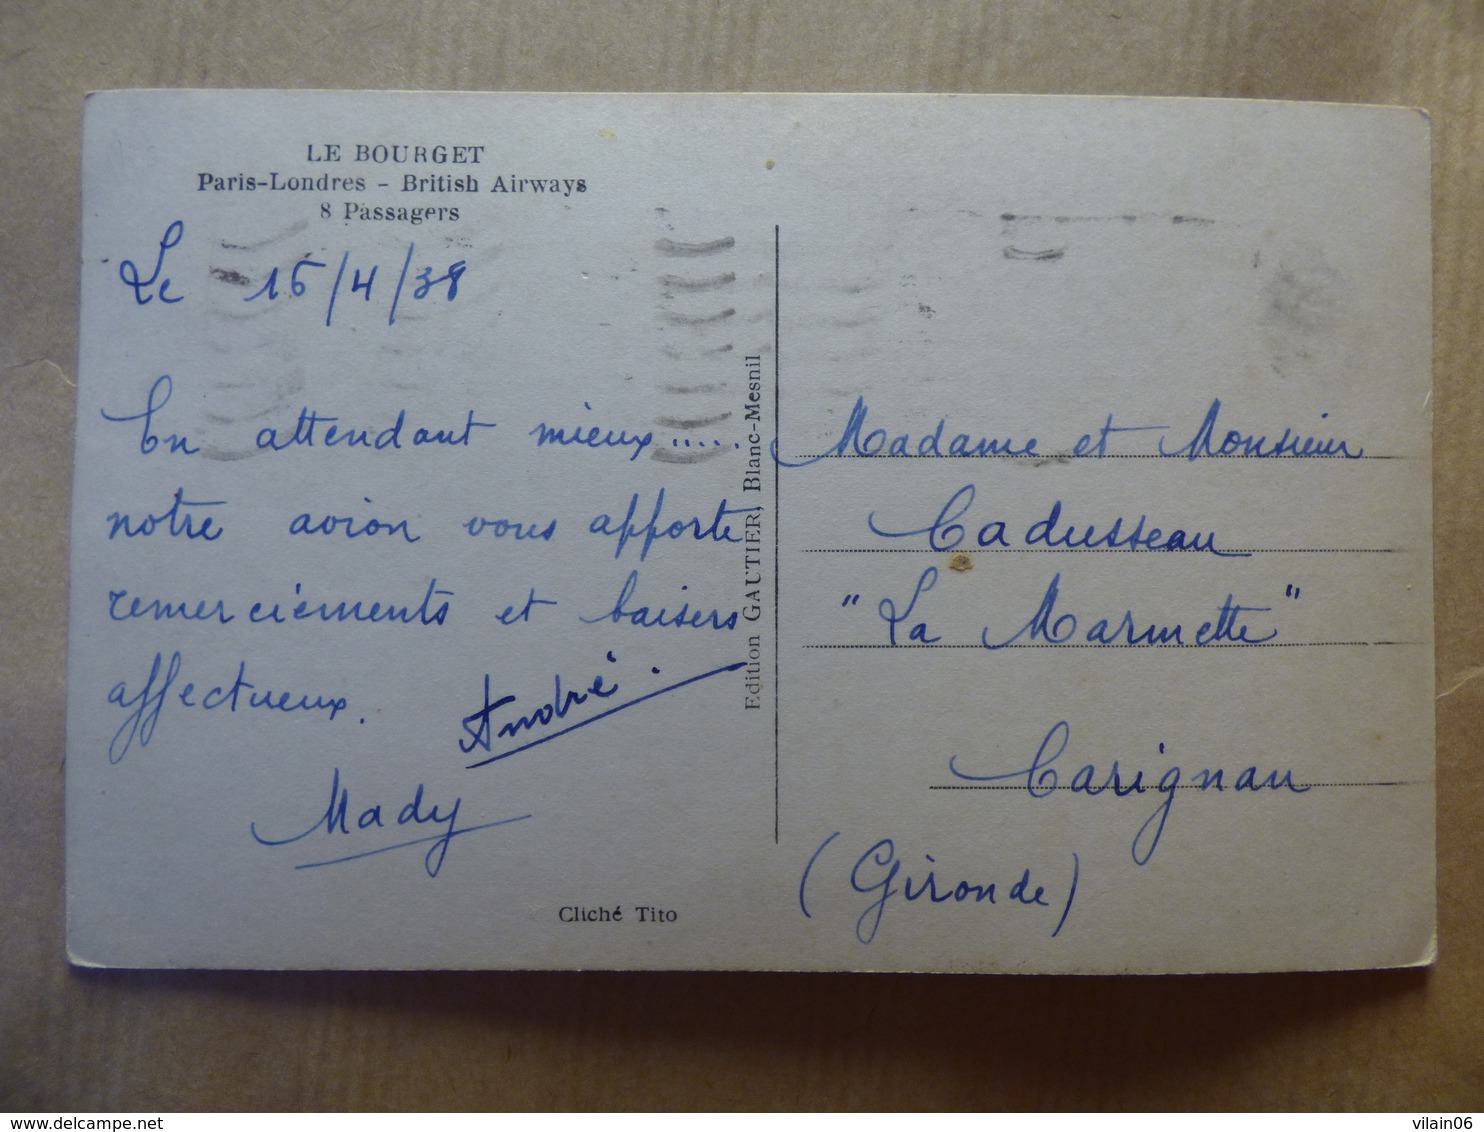 LE BOURGET
Paris-Londres - British Airways
8 Passagers
Le 15/4/38
En attendant mieux.....
notre avion vous apporte
remerciements et baisers
affectueux.
André.
Mady
Cliché Tito
Edition GAUTIER, Blanc-Mesnil
Madame et Monsieur
Cadusseau
"La Marmette"
Carignan
(Gironde)
delcampe.net
vilain06